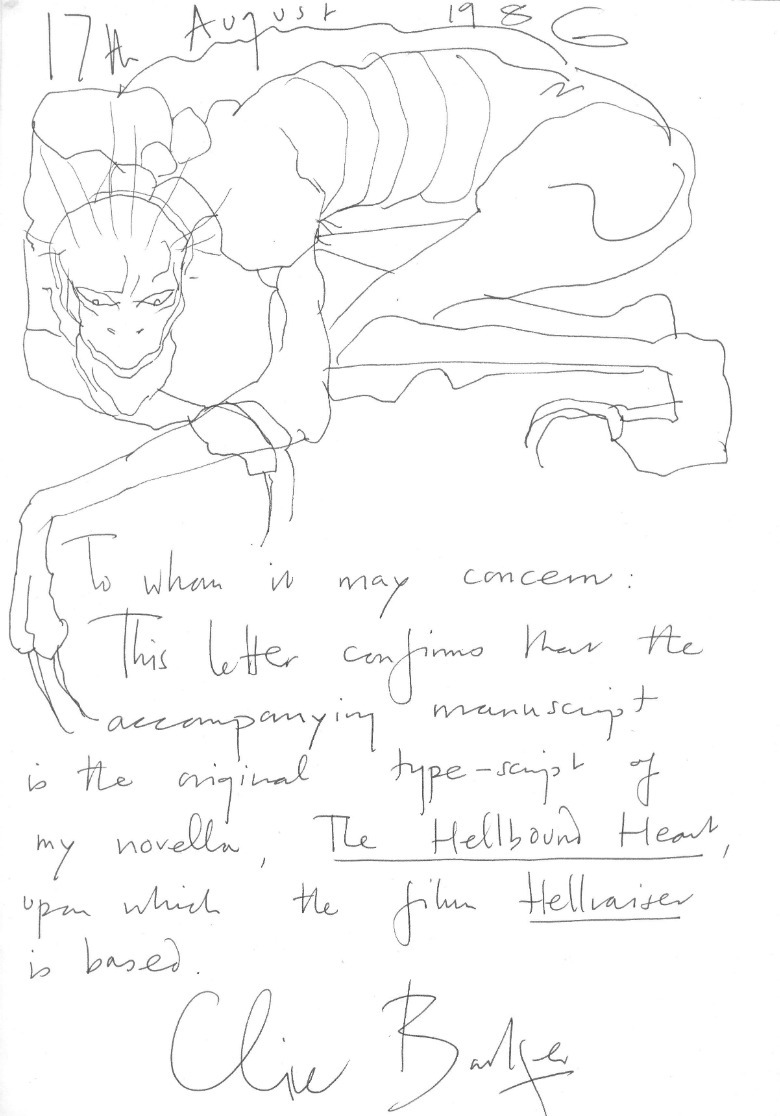 17th August 1986
To whom it may concern:
This letter confirms that the
accompanying manuscript
is the original type-script of
my novella, The Hellbound Heart,
upon which the film Hellraiser
is based.
Clive Barker